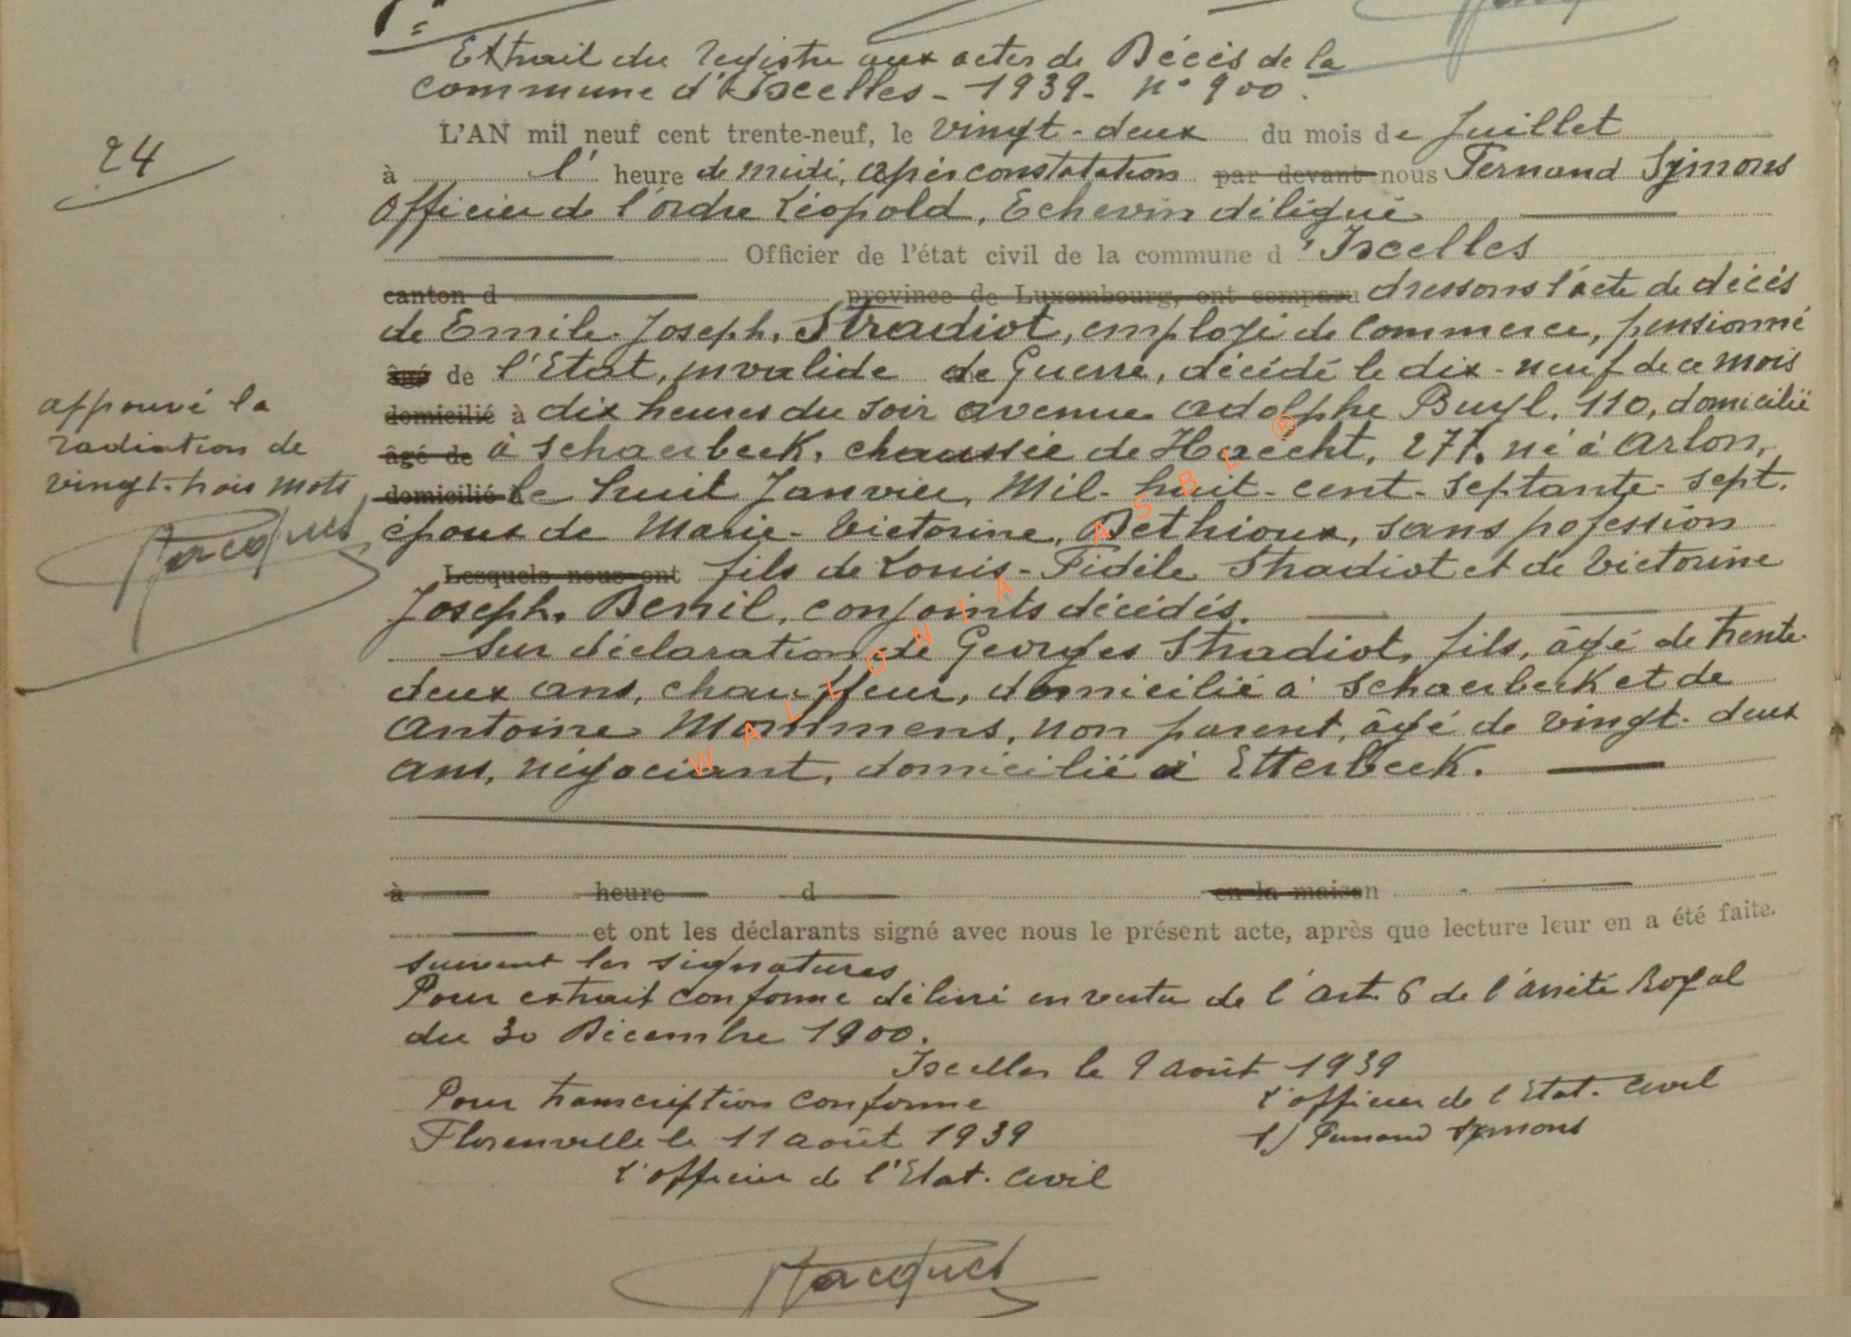 Extrait du registre aux actes de Décès de la
commune d'Ixcelles - 1939 - n° 900.
L'AN mil neuf cent trente-neuf, le vingt-deux du mois de Juillet
24
à l' heure de midi, après constatation par devant nous Fernand Symons
Officier de l'ordre Léopold, Echevin délégué
Officier de l'état civil de la commune d'Ixcelles
canton d province de Luxembourg, ont comparu dressons l'acte de décès
de Emile-Joseph, Stradiot, employé de commerce, pensionné
âgé de l'Etat, invalide de Guerre, décédé le dix-neuf de ce mois
domicilié à dix heures du soir avenue Adolphe Buyl, 110, domicilié
âgé de à Schaerbeek, chaussée de Haecht, 277, né à Arlon,
domicilié le huit Janvier, Mil-huit-cent-septante-sept.
approuvé la
radiation de
vingt-trois mots
Jacques
époux de Marie-Victorine, Bethioux, sans pofession
Lesquels nous ont fils de Louis-Fidèle Stradiot et de Victorine
Joseph, Benil, conjoints décédés.
Sur déclaration de Georges Stradiot, fils, âgé de trente-
deux ans, chauffeur, domicilié à Schaerbeek et de
Antoine Mommens, non parent, âgé de vingt-deux
ans, négociant, domicilié à Etterbeek.
à heure d en la maison
et ont les déclarants signé avec nous le présent acte, après que lecture leur en a été faite.
suivent les signatures
Pour extrait conforme délivré en vertu de l'art. 6 de l'arrêté Royal
du 30 Décembre 1900.
Ixcelles le 9 août 1939
Pour transcription conforme
L'officier de l'Etat-Civil
Florenville le 11 août 1939
s/ Fernand Symons
L'officier de l'Etat-Civil
Jacques
WALLONIA ASBL ®